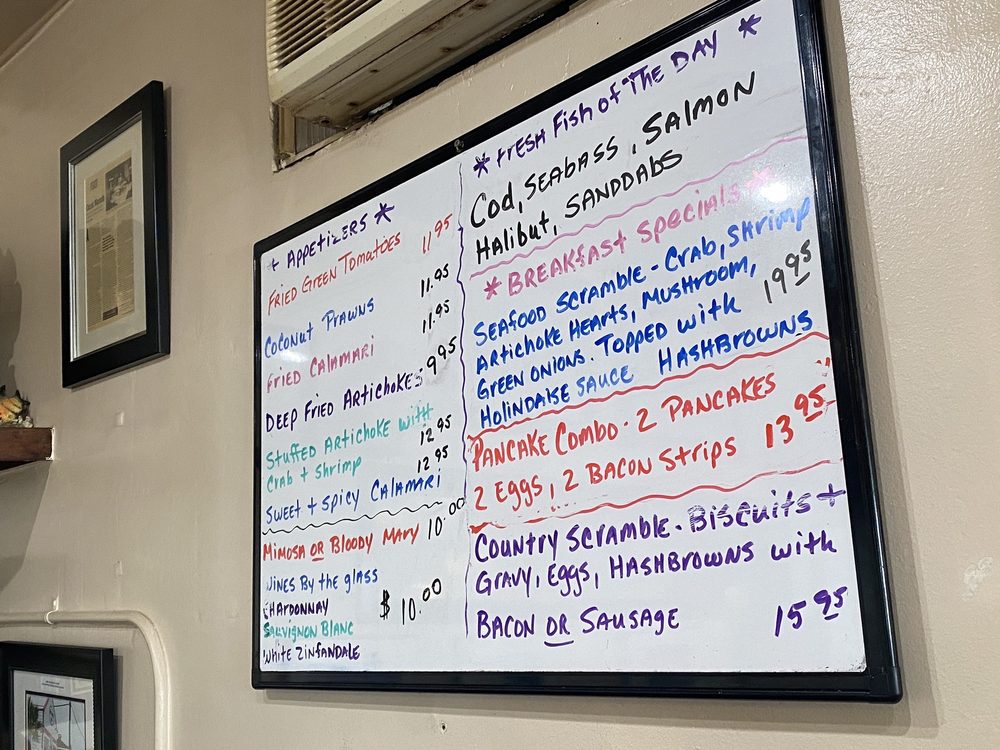 * APPETIZERS *
FRIED GREEN TOMATOES 11.95
COCONUT PRAWNS 11.95
FRIED CALAMARI 11.95
DEEP FRIED ARTICHOKES 9.95
STUFFED ARTICHOKE WITH
CRAB + SHRIMP 12.95
SWEET + SPICY CALAMARI 12.95
MIMOSA OR BLOODY MARY 10.00
WINES BY THE GLASS
CHARDONNAY $10.00
SAUVIGNON BLANC
WHITE ZINFANDALE
* FRESH FISH OF THE DAY *
COD, SEABASS, SALMON
HALIBUT, SANDDABS
* BREAKFAST SPECIALS *
SEAFOOD SCRAMBLE - CRAB, SHRIMP
ARTICHOKE HEARTS, MUSHROOM,
GREEN ONIONS. TOPPED WITH 19.95
HOLINDAISE SAUCE HASHBROWNS
PANCAKE COMBO - 2 PANCAKES
2 EGGS, 2 BACON STRIPS 13.95
COUNTRY SCRAMBLE - BISCUITS +
GRAVY, EGGS, HASHBROWNS WITH
BACON OR SAUSAGE 15.95